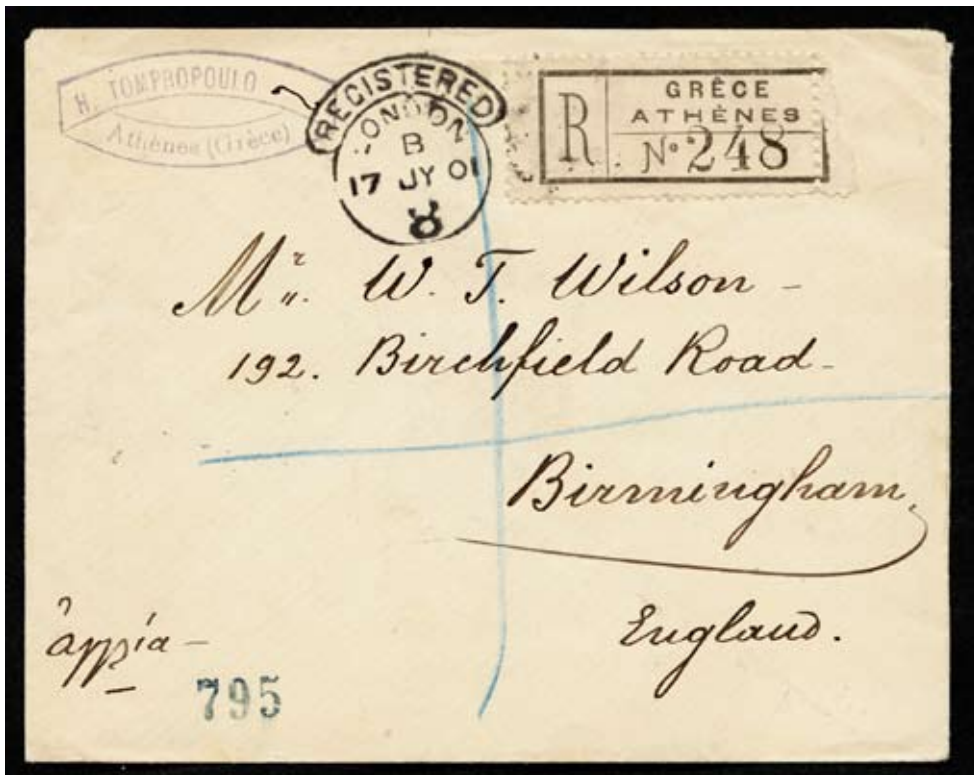 H. TOMPROPOULO
Athènes (Grèce)
REGISTERED
LONDON
B
17 JY 01
8
R
GRÈCE
ATHÈNES
No 248
Mr. W. T. Wilson -
192. Birchfield Road -
Birmingham,
England.
ἀγγλία -
795